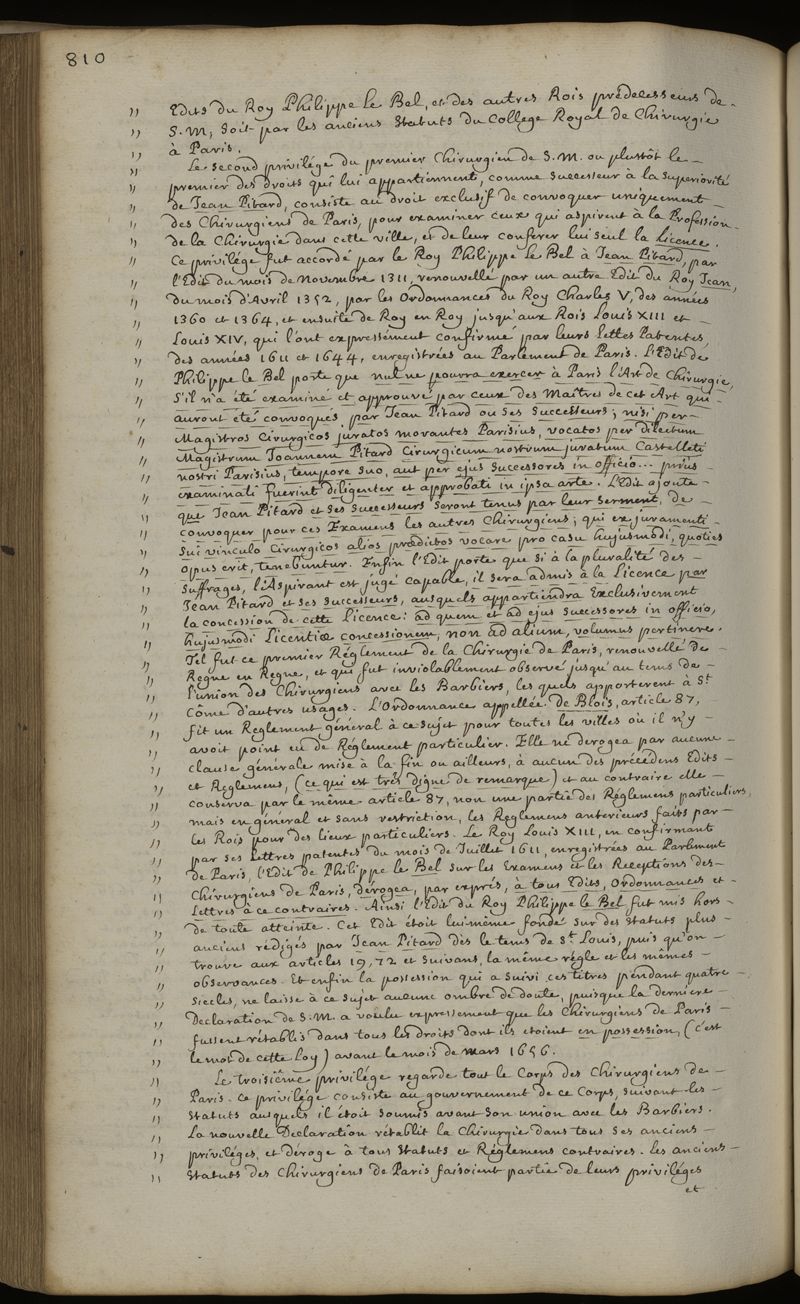 810
" Edits du Roy Philippe le Bel, et des autres Rois prédecesseurs de
" S.M, soit par les anciens Statuts du College Royal de Chirurgie
" à Paris.
" Le second privilége du premier Chirurgien de S.M. ou plustôt le
" premier des droits qui lui appartiennent, comme successeur à la superiorité
" de Jean Pitard, consiste au droit exclusif de convoquer uniquement
" des Chirurgiens de Paris, pour examiner ceux qui aspirent à la Profession
" de la Chirurgie dans cette ville, et de leur conferer lui seul la Licence.
" Ce privilége fut accordé par le Roy Philippe le Bel à Jean Pitard, par
" l'Edit du mois de Novembre 1311, renouvellé par un autre Edit du Roy Jean,
" du mois d'Avril 1352, par les Ordonnances du Roy Charles V, des années
" 1360 et 1364, et ensuite de Roy en Roy jusqu'aux Rois Louis XIII et
" Louis XIV, qui l'ont expressément confirmé par leurs lettres Patentes,
" des années 1611 et 1644, enregistrées au Parlement de Paris. L'Edit de
" Philippe le Bel porte que nul ne pourra exercer à Paris l'Art de Chirurgie,
" s'il n'a été examiné et approuvé par ceux des Maîtres de cet Art qui
" auront été convoqués par Jean Pitard ou ses Successeurs; nisi per
" Magistros Cirurgicos juratos morantes Parisius, vocatos per dilectum
" Magistrum Joannem Pitard Cirurgicum nostrum juratum Castelleti
" nostri Parisius, tempore suo, aut per ejus Successores in officio... prius
" examinati fuerint diligenter et approbati in ipsa arte. L'Edit ajoute
" que Jean Pitard et ses Successeurs seront tenus par leur serment, de
" convoquer pour ces Examens les autres Chirurgiens; qui ex juramenti
" sui vinculo Cirurgicos alios prædictos vocare pro casu hujusmodi, quoties
" opus erit, tenebuntur. Enfin l'Edit porte que si à la pluralité des
" suffrages, l'Aspirant est jugé capable, il sera admis à la Licence par
" Jean Pitard et ses successeurs, ausquels appartiendra exclusivement
" la concession de cette Licence: ad quem et ad ejus successores in officio,
" hujusmodi Licentiæ concessionem, non ad alium, volumus pertinere.
" Tel fut ce premier Réglement de la Chirurgie de Paris, renouvellé de
" Regne en Regne, et qui fut inviolablement observé jusqu'au tems de
" l'union des Chirurgiens avec les Barbiers, les quels apporterent à St
" Côme d'autres usages. L'Ordonnance appellée de Blois, article 87,
" fit un Reglement général à ce sujet pour toutes les villes où il n'y
" avoit point eu de Réglement particulier. Elle ne derogea par aucune
" clause générale mise à la fin ou ailleurs, à aucun des précedens Edits
" et Reglemens, (ce qui est très digne de remarque) et au contraire elle
" conserva par le même article 87, non une partie des Réglemens particuliers,
" mais en général et sans restriction, les Reglemens anterieurs faits par
" les Rois pour des lieux particuliers. Le Roy Louis XIII, en confirmant
" par ses lettres patentes du mois de Juillet 1611, enregistrées au Parlement
" de Paris, l'Edit de Philippe le Bel sur les Examens et les Receptions des
" Chirurgiens de Paris, dérogea, par exprés, à tous Edits, Ordonnances et
" Lettres à ce contraires. Ainsi l'Edit du Roy Philippe le Bel fut mis hors
" de toute atteinte. Cet Edit étoit lui même fondé sur des Statuts plus
" anciens rédigés par Jean Pitard dès le tems de St. Louis, puis qu'on
" trouve aux articles 19, 72 et suivans, la même régle et les mêmes
" observances. Et enfin la possession qui a suivi ces titres pendant quatre
" siecles, ne laisse à ce sujet aucune ombre de doute, puisque la derniere
" Declaration de S.M. a voulu expressement que les Chirurgiens de Paris
" fussent rétablis dans tous les droits dont ils étoient en possession, (c'est
" le mot de cette Loy) avant le mois de Mars 1656.
" Le troisiême privilége regarde tout le Corps des Chirurgiens de
" Paris. Ce privilége consiste au gouvernement de ce Corps, suivant les
" Statuts ausquels il étoit soumis avant son union avec les Barbiers.
" La nouvelle Declaration rétablit la Chirurgie dans tous ses anciens
" priviléges, et déroge à tous Statuts et Réglemens contraires. Les anciens
" Statuts des Chirurgiens de Paris faisoient partie de leurs priviléges
et